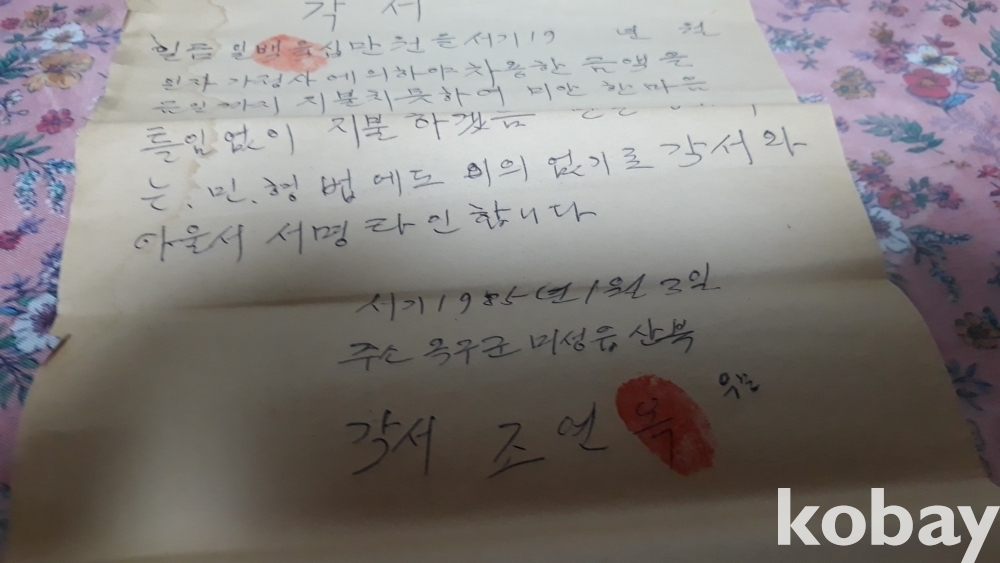 각서
일금 일백육십만원을 서기19 년 월
인자 가정사에 의하야 차용한 금액을
금일까지 지불치 못하여 미안한 마음
틀임없이 지불하겠음
는, 민, 형법에도 이의 없기로 각서와
아울서 서명 타인합니다
서기1985년 1월 3일
주소 옥구군 미성읍 산북
각서 조연옥
kobay